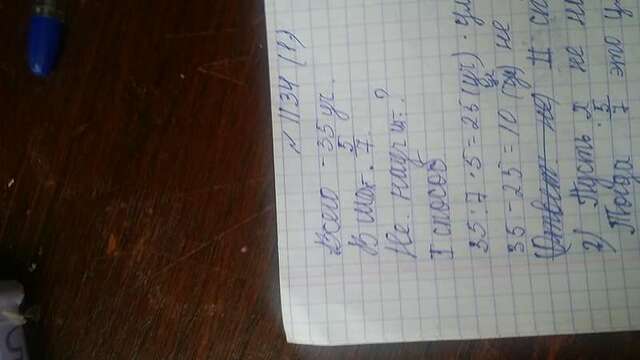 № 1134 (1)
Всего - 35 уч.
В мат. 5/7
Не науч.- ?
I способ
35:7·5=25(уч)
35-25=10 (уч) не
(Ответ не) II
2) Пусть не
Тогда 5/7 это